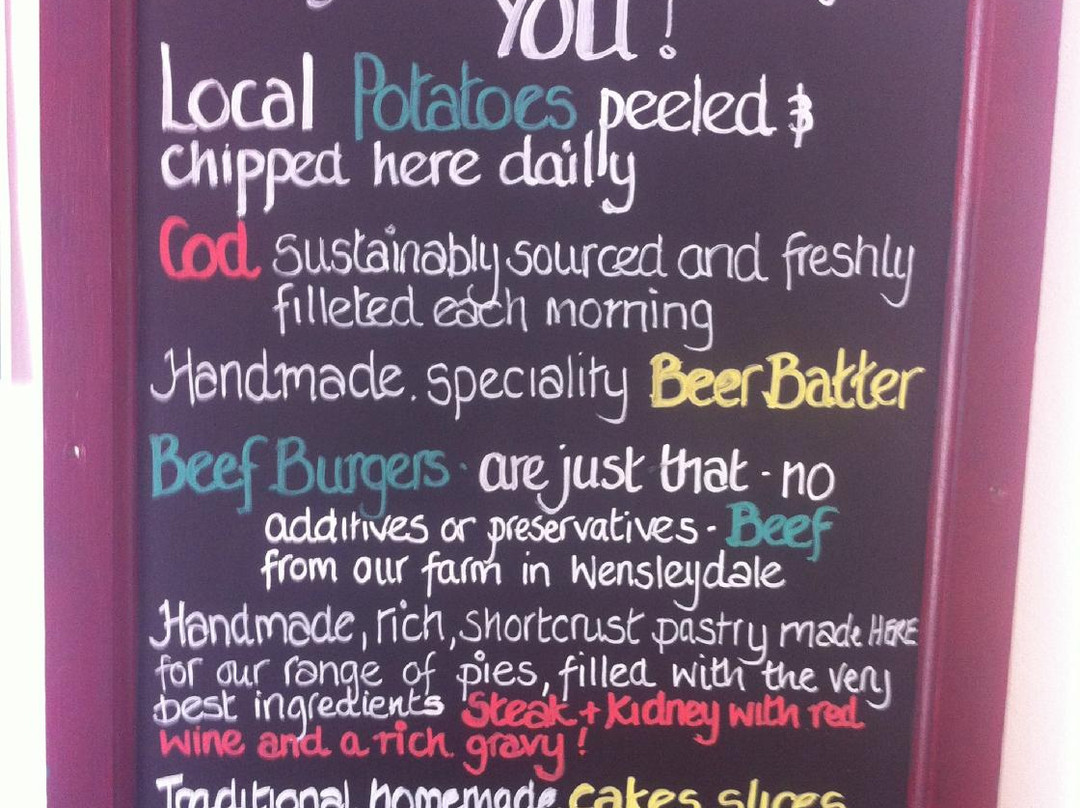 YOU!
Local Potatoes peeled &
chipped here dailly
Cod sustainably sourced and freshly
filleted each morning
Handmade. speciality Beer Batter
Beef Burgers - are just that - no
additives or preservatives - Beef
from our farm in Wensleydale
Handmade, rich, shortcrust pastry made HERE
for our range of pies, filled with the very
best ingredients Steak + Kidney with red
wine and a rich gravy!
Traditional homemade cakes slices